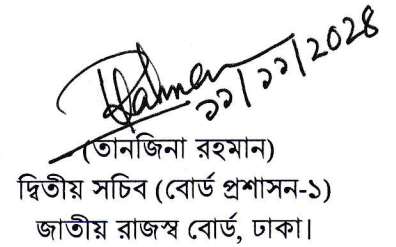 ১১/১১/২০২৪
(তানজিনা রহমান)
দ্বিতীয় সচিব (বোর্ড প্রশাসন-১)
জাতীয় রাজস্ব বোর্ড, ঢাকা।